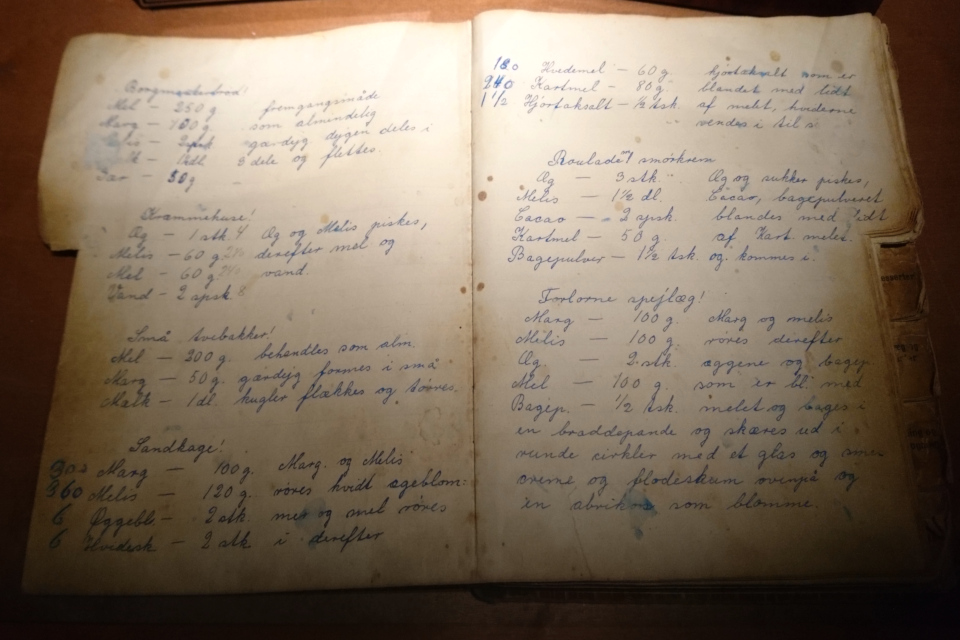 Borgmesterbrød!
Mel — 250 g fremgangsmåde
Marg — 100 g. som almindelig
Melis — 2 spsk gærdejg dejgen deles i
dl 3 dele og flettes.
Gær — 50 g
Kræmmehuse!
Æg — 1 stk 4 Æg og Melis piskes,
Melis — 60 g 240 derefter mel og
Mel — 60 g 240 vand.
Vand — 2 spsk 8
Små tvebakker!
Mel — 200 g. behandles som alm.
Marg — 50 g. gærdejg formes i små
Mælk — 1 dl. kugler flækkes og tørres.
Sandkage!
300 Marg — 100 g. Marg. og Melis
360 Melis — 120 g. røres hvidt æggeblom:
6 Æggebl. — 2 stk. mer og mel røres
6 Hvidesk — 2 stk i derefter
180 Hvedemel — 60 g. hjortetaksalt som er
240 Kartmel — 80 g. blandet med lidt
1 1/2 Hjortaksalt — ½ tsk. af melet, hviderne
vendes i til s
Roulade m/ smørkrem
Æg — 3 stk. Æg og sukker piskes,
Melis — 1½ dl. Cacao, bagepulveret
Cacao — 2 spsk. blandes med lidt
Kartmel — 50 g. af Kart melet.
Bagepulver — 1½ tsk og kommes i.
Forlorne spejlæg!
Marg — 100 g. Marg og melis
Melis — 100 g. røres derefter
Æg — 2 stk. æggene og bagep.
Mel — 100 g. som er bl. med
Bagep. — ½ tsk. melet og bages i
en braddepande og skæres ud i
runde cirkler med et glas og
creme og flødeskum ovenpå og
en abrikos som blomme.